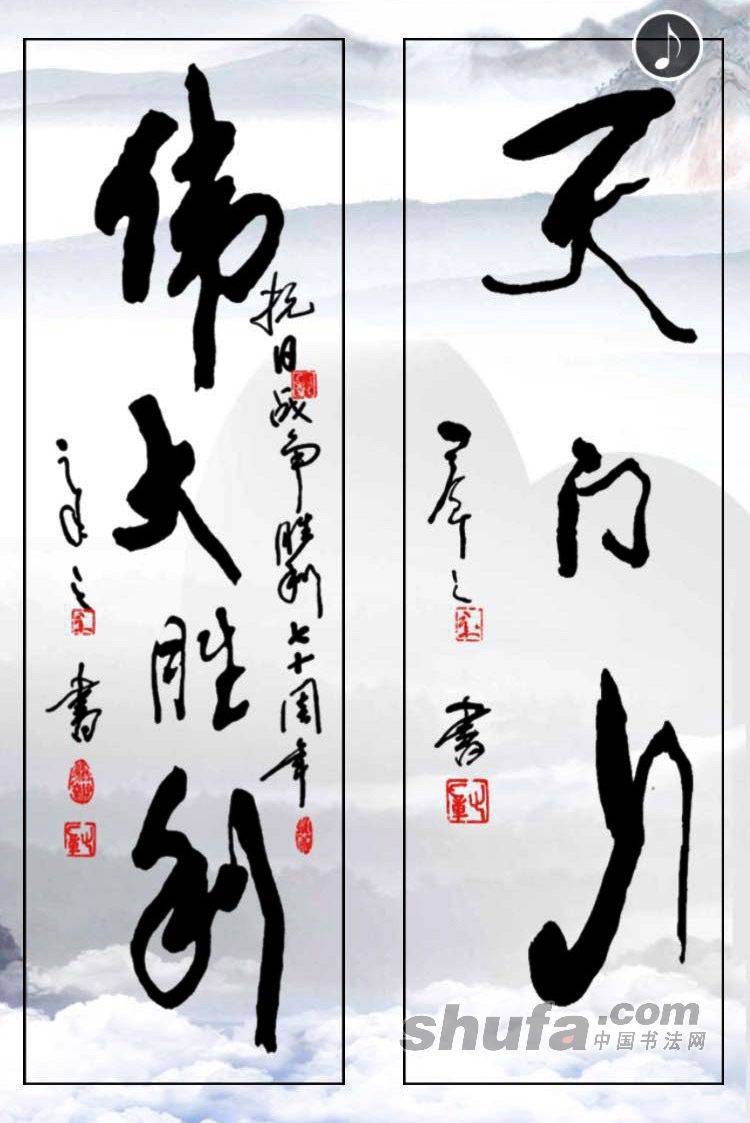 天门
之
書
伟大胜利
抗日战争胜利七十周年
之
書
shufa.com
中国书法网